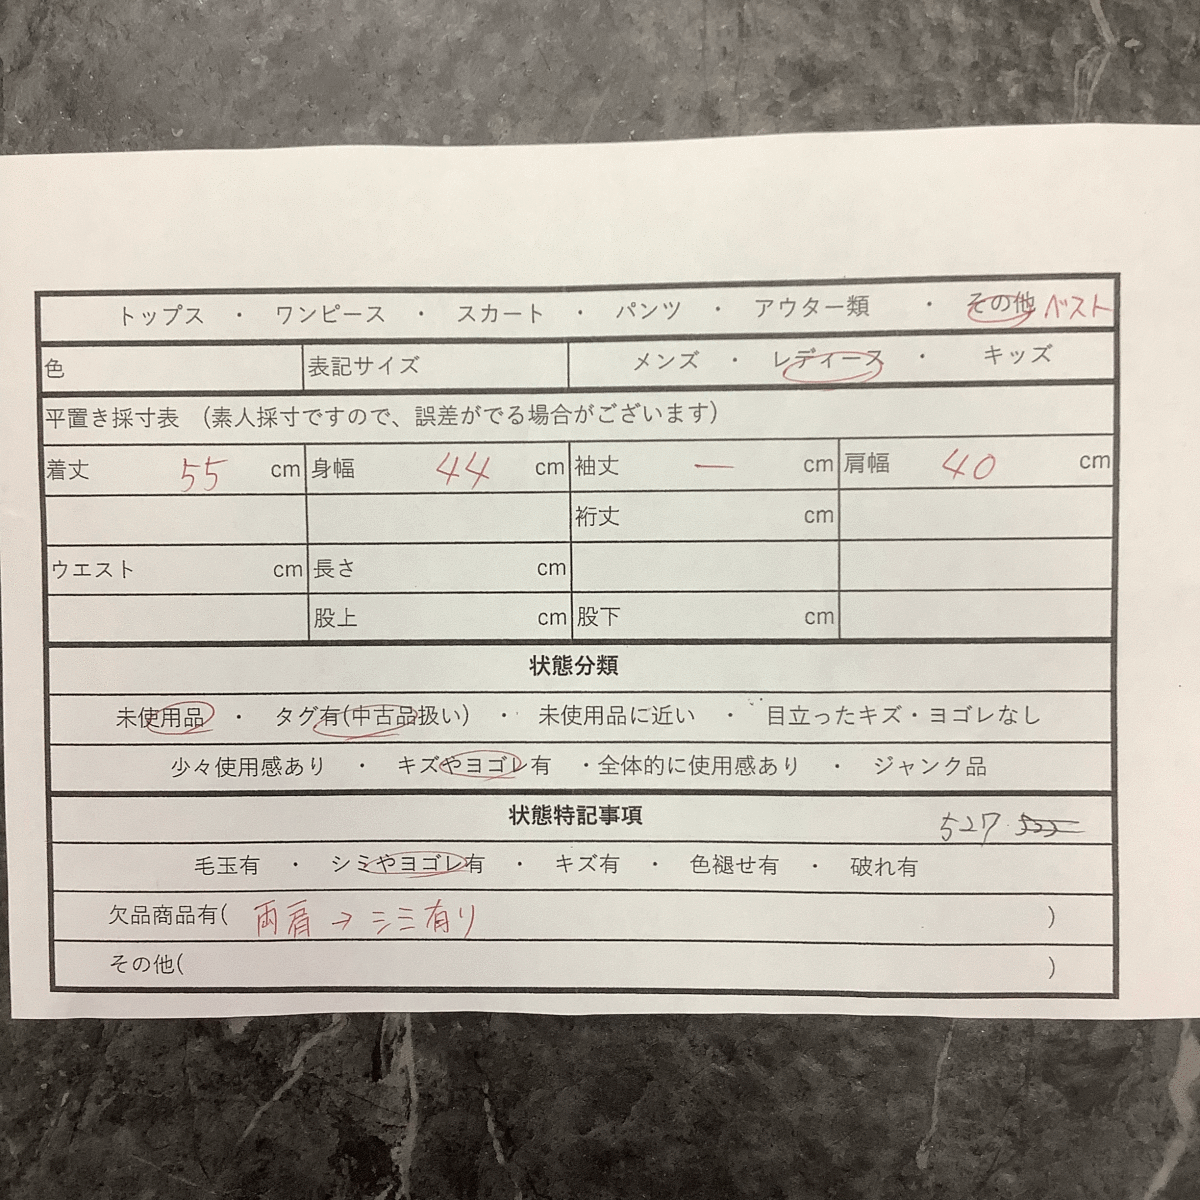 トップス ・ ワンピース ・ スカート ・ パンツ ・ アウター類 ・ その他 ベスト
色 表記サイズ メンズ ・ レディース ・ キッズ
平置き採寸表 (素人採寸ですので、誤差がでる場合がございます)
着丈 55 cm 身幅 44 cm 袖丈 ー cm 肩幅 40 cm
裄丈 cm
ウエスト cm 長さ cm
股上 cm 股下 cm
状態分類
未使用品 ・ タグ有(中古品扱い) ・ 未使用品に近い ・ 目立ったキズ・ヨゴレなし
少々使用感あり ・ キズやヨゴレ有 ・全体的に使用感あり ・ ジャンク品
状態特記事項 527
毛玉有 ・ シミやヨゴレ有 ・ キズ有 ・ 色褪せ有 ・ 破れ有
欠品商品有( 両肩 → シミ有り )
その他( )